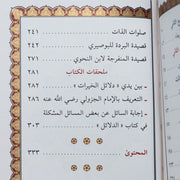 صلوات الذات ٢٤١
قصيدة البردة للبوصيري ٢٤٩
قصيدة المنفرجة لابن النحوي ٢٧٥
ملحقات الكتاب ٢٨١
- بين يدي « دلائل الخيرات » ٢٨٢
- التعريف بالإمام الجزولي رضي الله عنه ٢٨٦
- إجابة السائل عن بعض المسائل المشكلة
في كتاب « الدلائل » ٣٠٣
المحتوى ٣٣٣